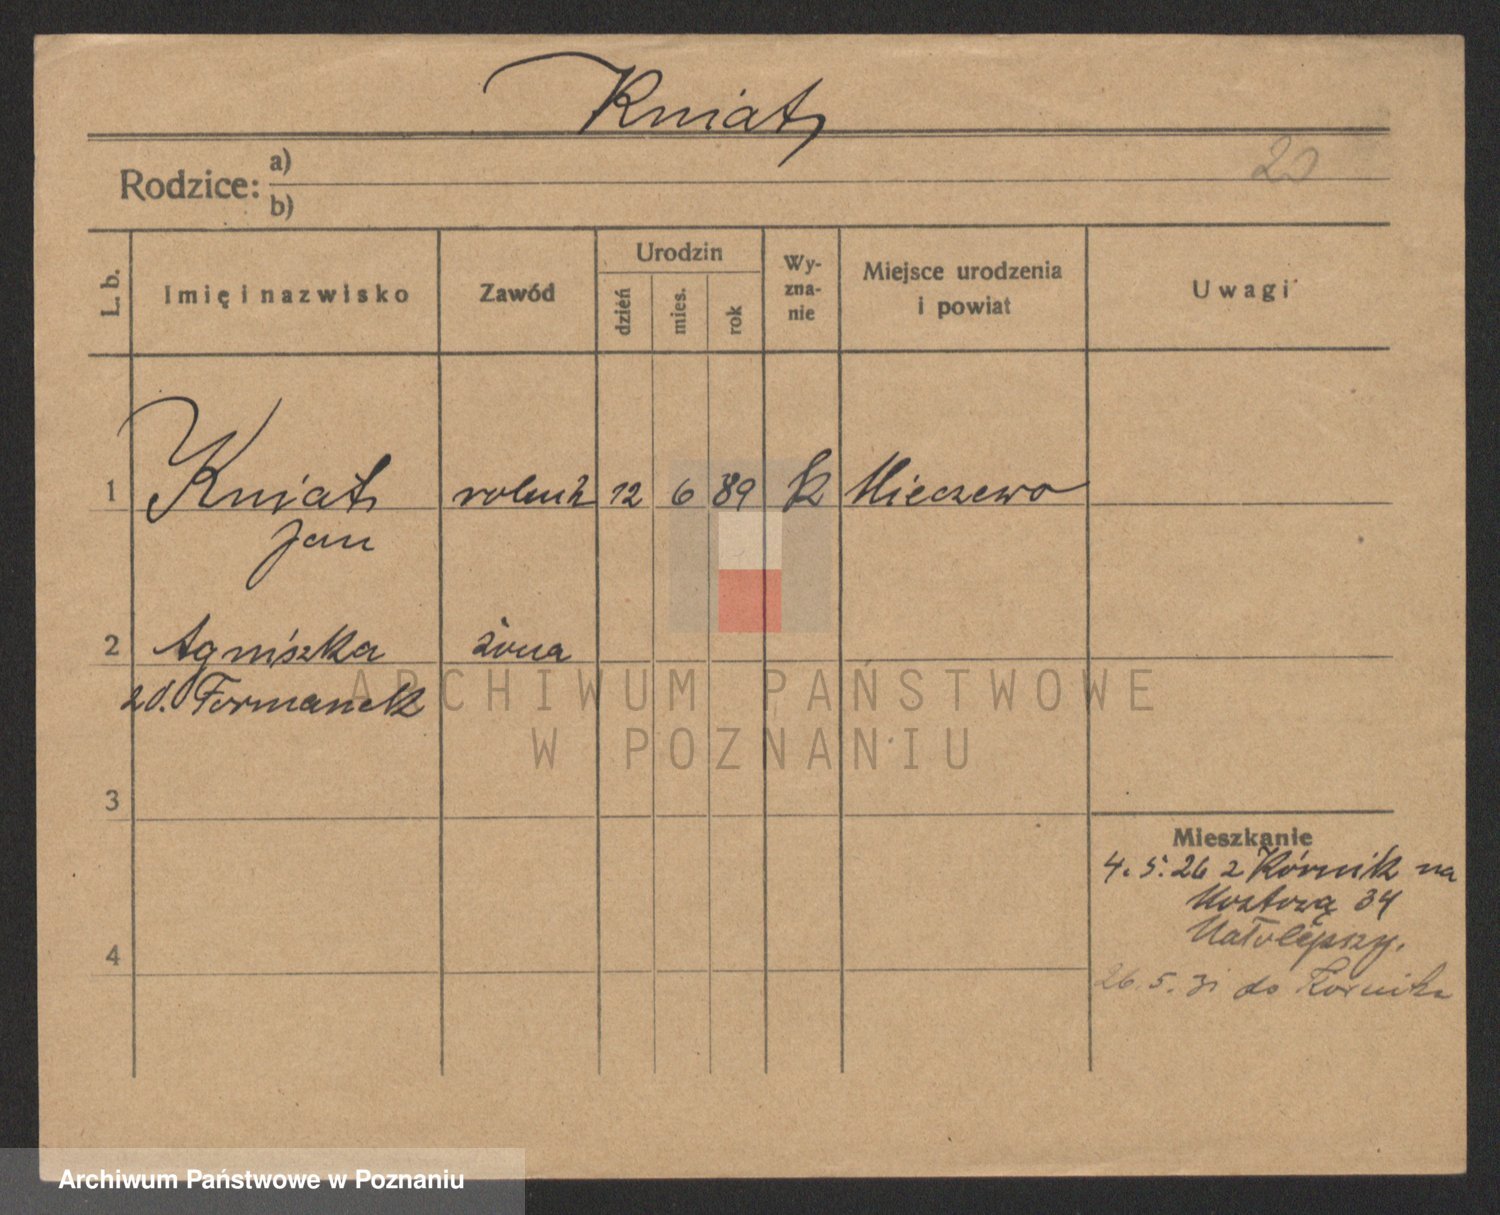 Kniat
20
Rodzice: a)
b)
L. b.
Imię i nazwisko
Zawód
Urodzin
dzień
mies.
rok
Wy-
zna-
nie
Miejsce urodzenia
i powiat
Uwagi
1 Kniat 12 6 89 k Mieczewo
Jan
2 Agniszka żona
zd. Formanek
3
Mieszkanie
4. 5. 26 z Kórnik na
34
4
26. 5. 31 do Kórnika
ARCHIWUM PAŃSTWOWE
W POZNANIU
Archiwum Państwowe w Poznaniu